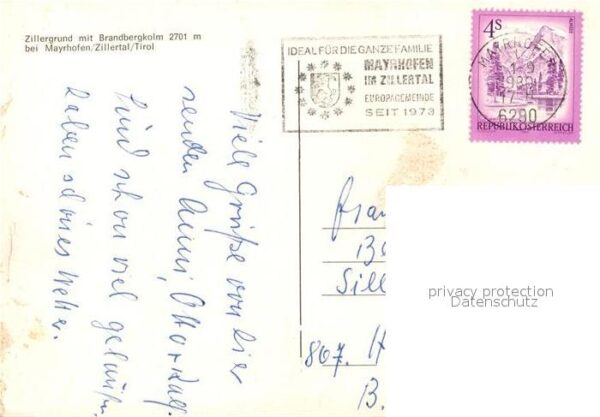 Zillergrund mit Brandbergkolm 2701 m
bei Mayrhofen/Zillertal/Tirol
IDEAL FÜR DIE GANZE FAMILIE
MAYRHOFEN
IM ZILLERTAL
EUROPAGEMEINDE
SEIT 1973
4S
MAYRHOFEN
6290
REPUBLIK ÖSTERREICH
Viele Grüße von hier
senden Anni, Otto + Ralf.
Sind schon viel gelaufen.
Haben schönes Wetter.
Frau
Sill
867. H
B.
privacy protection
Datenschutz